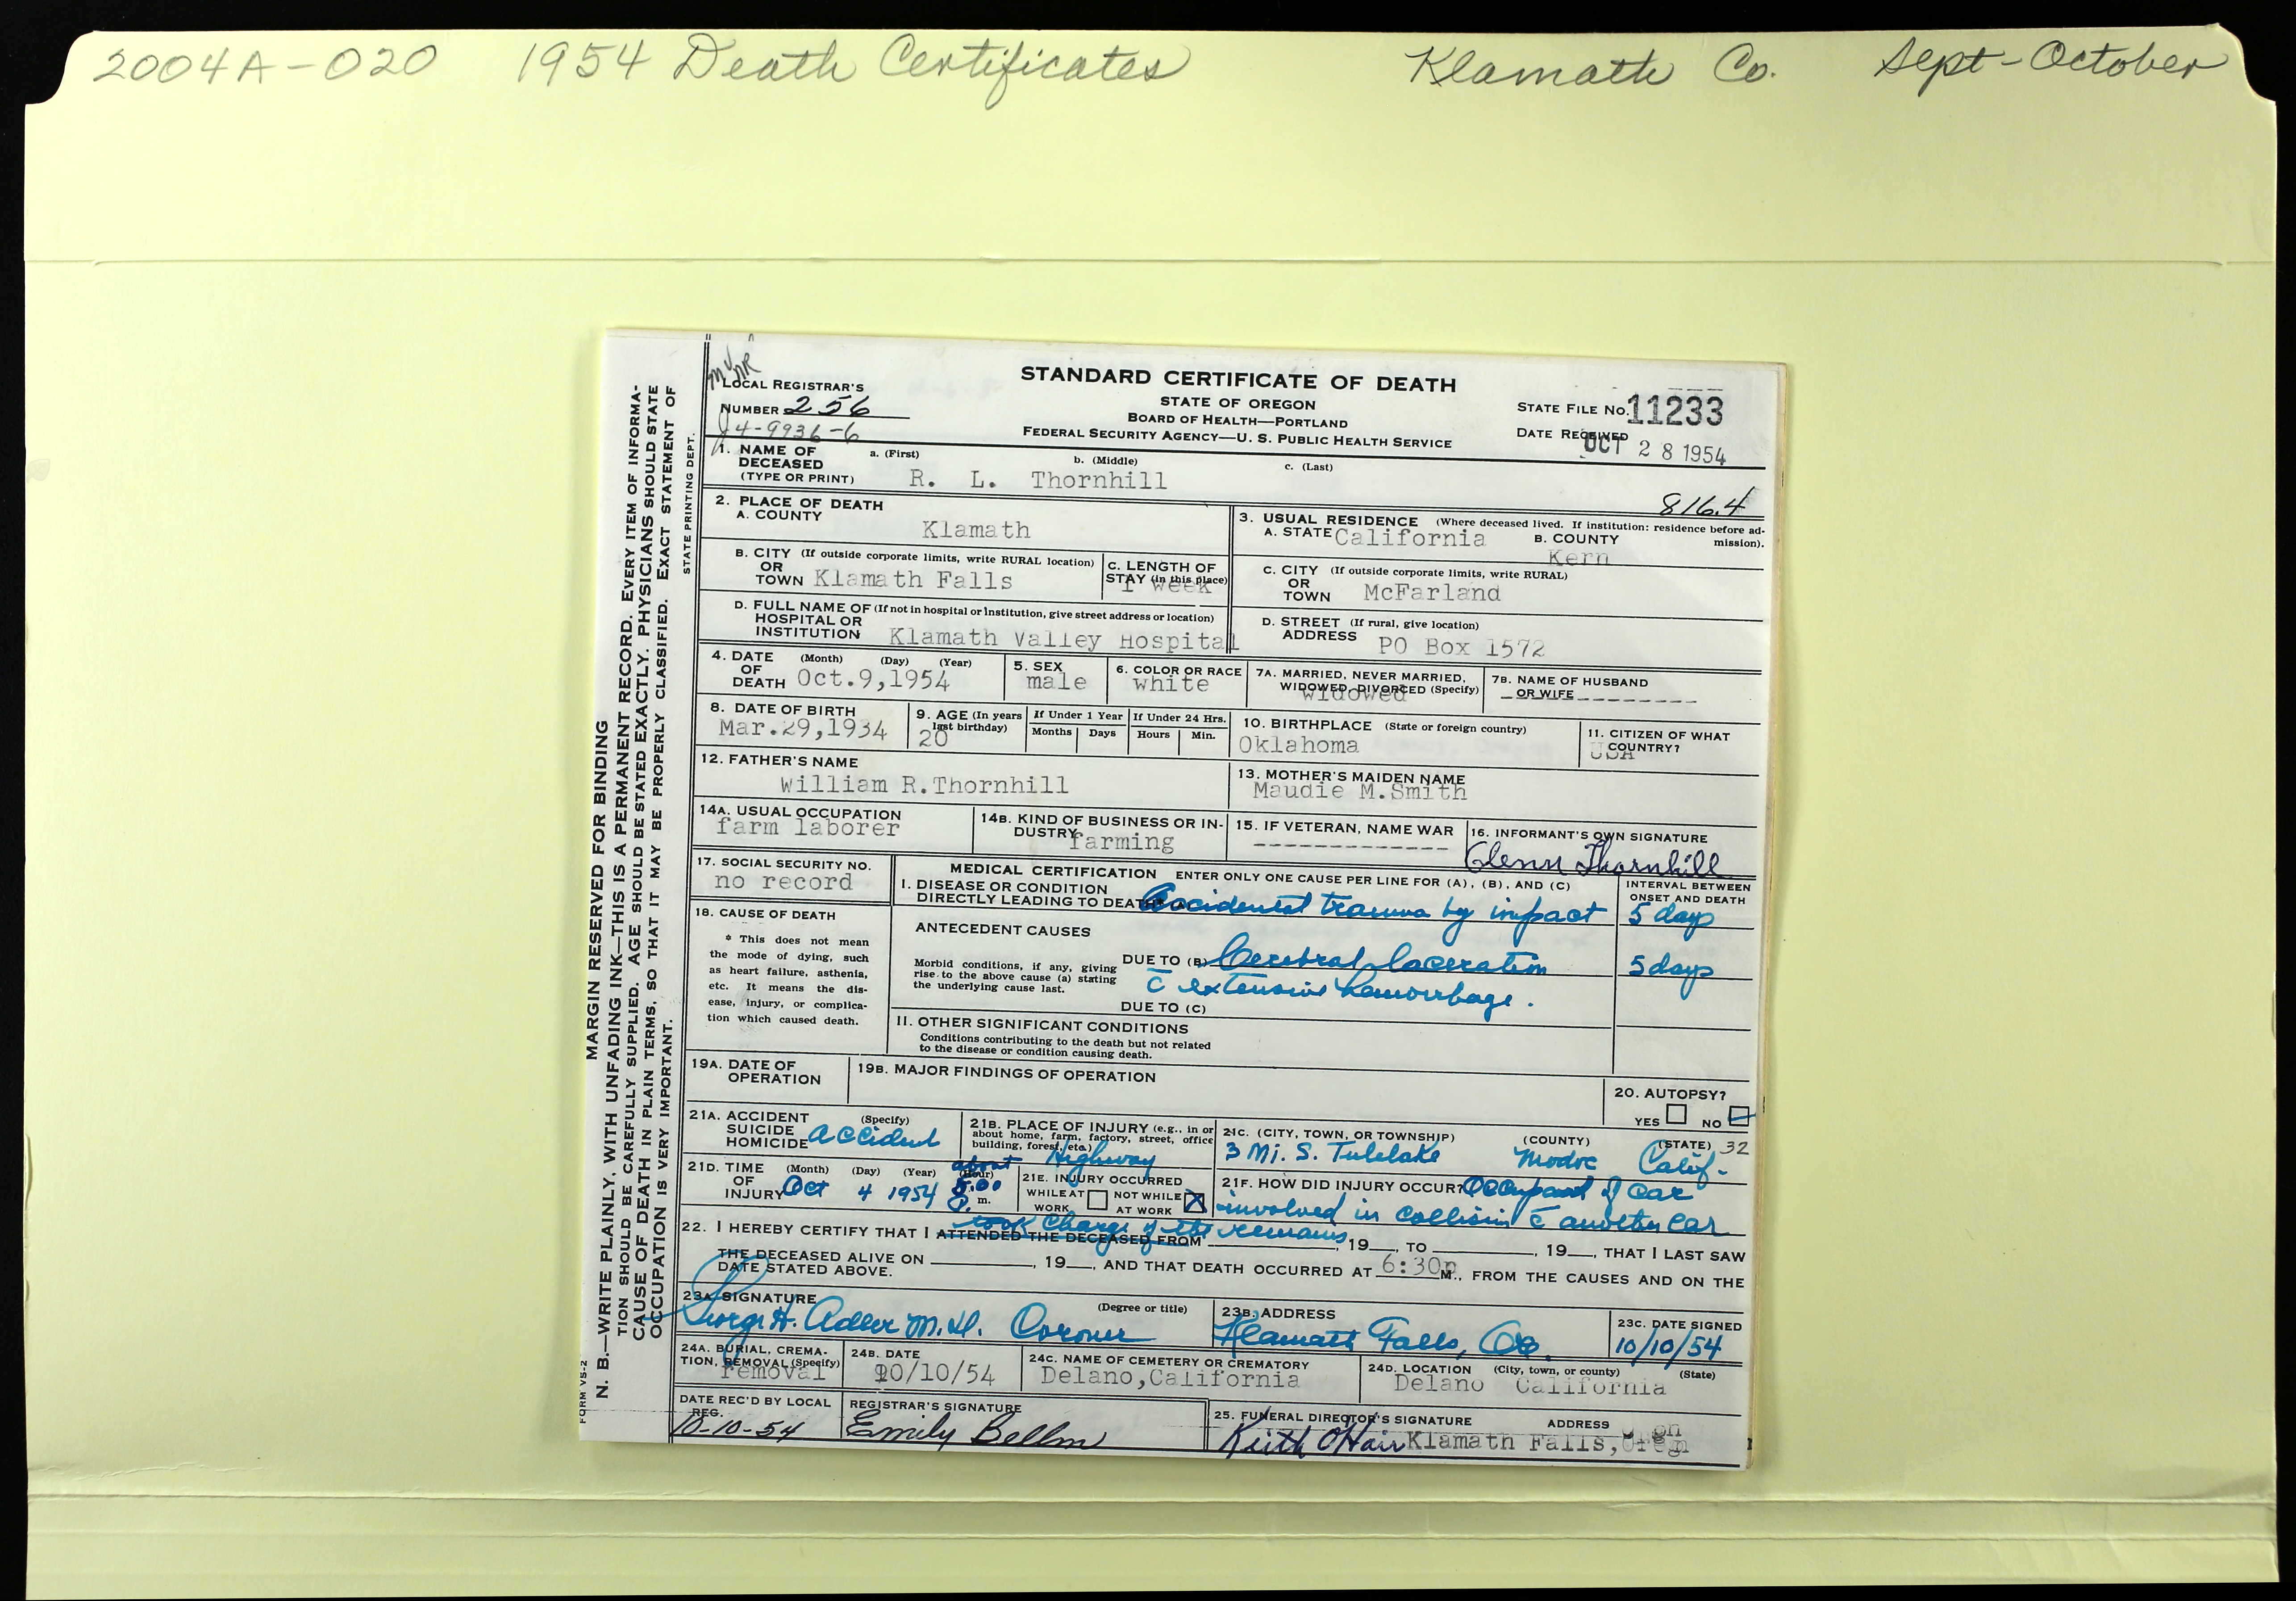 2004A-020 1954 Death Certificates Klamath Co. Sept-October
LOCAL REGISTRAR'S
NUMBER 256
4-9936-6
STANDARD CERTIFICATE OF DEATH
STATE OF OREGON
BOARD OF HEALTH—PORTLAND
FEDERAL SECURITY AGENCY—U. S. PUBLIC HEALTH SERVICE
STATE FILE NO. 11233
DATE RECEIVED OCT 28 1954
1. NAME OF DECEASED (TYPE OR PRINT) a. (First) b. (Middle) c. (Last)
R. L. Thornhill
816.4
2. PLACE OF DEATH
A. COUNTY
Klamath
3. USUAL RESIDENCE (Where deceased lived. If institution: residence before admission).
A. STATE California B. COUNTY Kern
B. CITY (If outside corporate limits, write RURAL location)
OR TOWN Klamath Falls
C. LENGTH OF STAY (in this place) 1 week
C. CITY (If outside corporate limits, write RURAL)
OR TOWN McFarland
D. FULL NAME OF (If not in hospital or institution, give street address or location)
HOSPITAL OR INSTITUTION Klamath Valley Hospital
D. STREET (If rural, give location)
ADDRESS PO Box 1572
4. DATE OF DEATH (Month) (Day) (Year) Oct.9,1954
5. SEX male
6. COLOR OR RACE white
7A. MARRIED, NEVER MARRIED, WIDOWED, DIVORCED (Specify) widowed
7B. NAME OF HUSBAND OR WIFE
8. DATE OF BIRTH Mar.29,1934
9. AGE (In years last birthday) 20
If Under 1 Year Months Days
If Under 24 Hrs. Hours Min.
10. BIRTHPLACE (State or foreign country) Oklahoma
11. CITIZEN OF WHAT COUNTRY? USA
12. FATHER'S NAME
William R.Thornhill
13. MOTHER'S MAIDEN NAME
Maudie M.Smith
14A. USUAL OCCUPATION
farm laborer
14B. KIND OF BUSINESS OR INDUSTRY farming
15. IF VETERAN, NAME WAR
16. INFORMANT'S OWN SIGNATURE
Glenn Thornhill
17. SOCIAL SECURITY NO.
no record
MEDICAL CERTIFICATION ENTER ONLY ONE CAUSE PER LINE FOR (A), (B), AND (C)
INTERVAL BETWEEN ONSET AND DEATH
I. DISEASE OR CONDITION
DIRECTLY LEADING TO DEATH* Accidental trauma by impact 5 days
18. CAUSE OF DEATH
* This does not mean the mode of dying, such as heart failure, asthenia, etc. It means the disease, injury, or complication which caused death.
ANTECEDENT CAUSES
Morbid conditions, if any, giving rise to the above cause (a) stating the underlying cause last.
DUE TO (B) Cerebral laceration 5 days
c̄ extensive hemorrhage.
DUE TO (C)
II. OTHER SIGNIFICANT CONDITIONS
Conditions contributing to the death but not related to the disease or condition causing death.
19A. DATE OF OPERATION
19B. MAJOR FINDINGS OF OPERATION
20. AUTOPSY?
YES NO
21A. ACCIDENT SUICIDE HOMICIDE (Specify) accident
21B. PLACE OF INJURY (e.g., in or about home, farm, factory, street, office building, forest, etc.) Highway
21C. (CITY, TOWN, OR TOWNSHIP) (COUNTY) (STATE) 32
3 Mi. S. Tulelake Modoc Calif.
21D. TIME OF INJURY (Month) (Day) (Year) (Hour) Oct 4 1954 about 8:00 P. m.
21E. INJURY OCCURRED
WHILE AT WORK NOT WHILE AT WORK X
21F. HOW DID INJURY OCCUR? Occupant of car
involved in collision c̄ another car
took charge of the remains
22. I HEREBY CERTIFY THAT I ATTENDED THE DECEASED FROM , 19 , TO , 19 , THAT I LAST SAW
THE DECEASED ALIVE ON , 19 , AND THAT DEATH OCCURRED AT 6:30p M., FROM THE CAUSES AND ON THE
DATE STATED ABOVE.
23A. SIGNATURE (Degree or title)
George H. Adler M.D. Coroner
23B. ADDRESS
Klamath Falls, Ore.
23C. DATE SIGNED
10/10/54
24A. BURIAL, CREMATION, REMOVAL (Specify)
removal
24B. DATE
10/10/54
24C. NAME OF CEMETERY OR CREMATORY
Delano,California
24D. LOCATION (City, town, or county) (State)
Delano California
DATE REC'D BY LOCAL REG.
10-10-54
REGISTRAR'S SIGNATURE
Emily Bellm
25. FUNERAL DIRECTOR'S SIGNATURE ADDRESS
Keith O'Hair Klamath Falls,
STATE PRINTING DEPT.
MARGIN RESERVED FOR BINDING
N. B.—WRITE PLAINLY, WITH UNFADING INK—THIS IS A PERMANENT RECORD. EVERY ITEM OF INFORMA-
TION SHOULD BE CAREFULLY SUPPLIED. AGE SHOULD BE STATED EXACTLY. PHYSICIANS SHOULD STATE
CAUSE OF DEATH IN PLAIN TERMS, SO THAT IT MAY BE PROPERLY CLASSIFIED. EXACT STATEMENT OF
OCCUPATION IS VERY IMPORTANT.
FORM VS-2